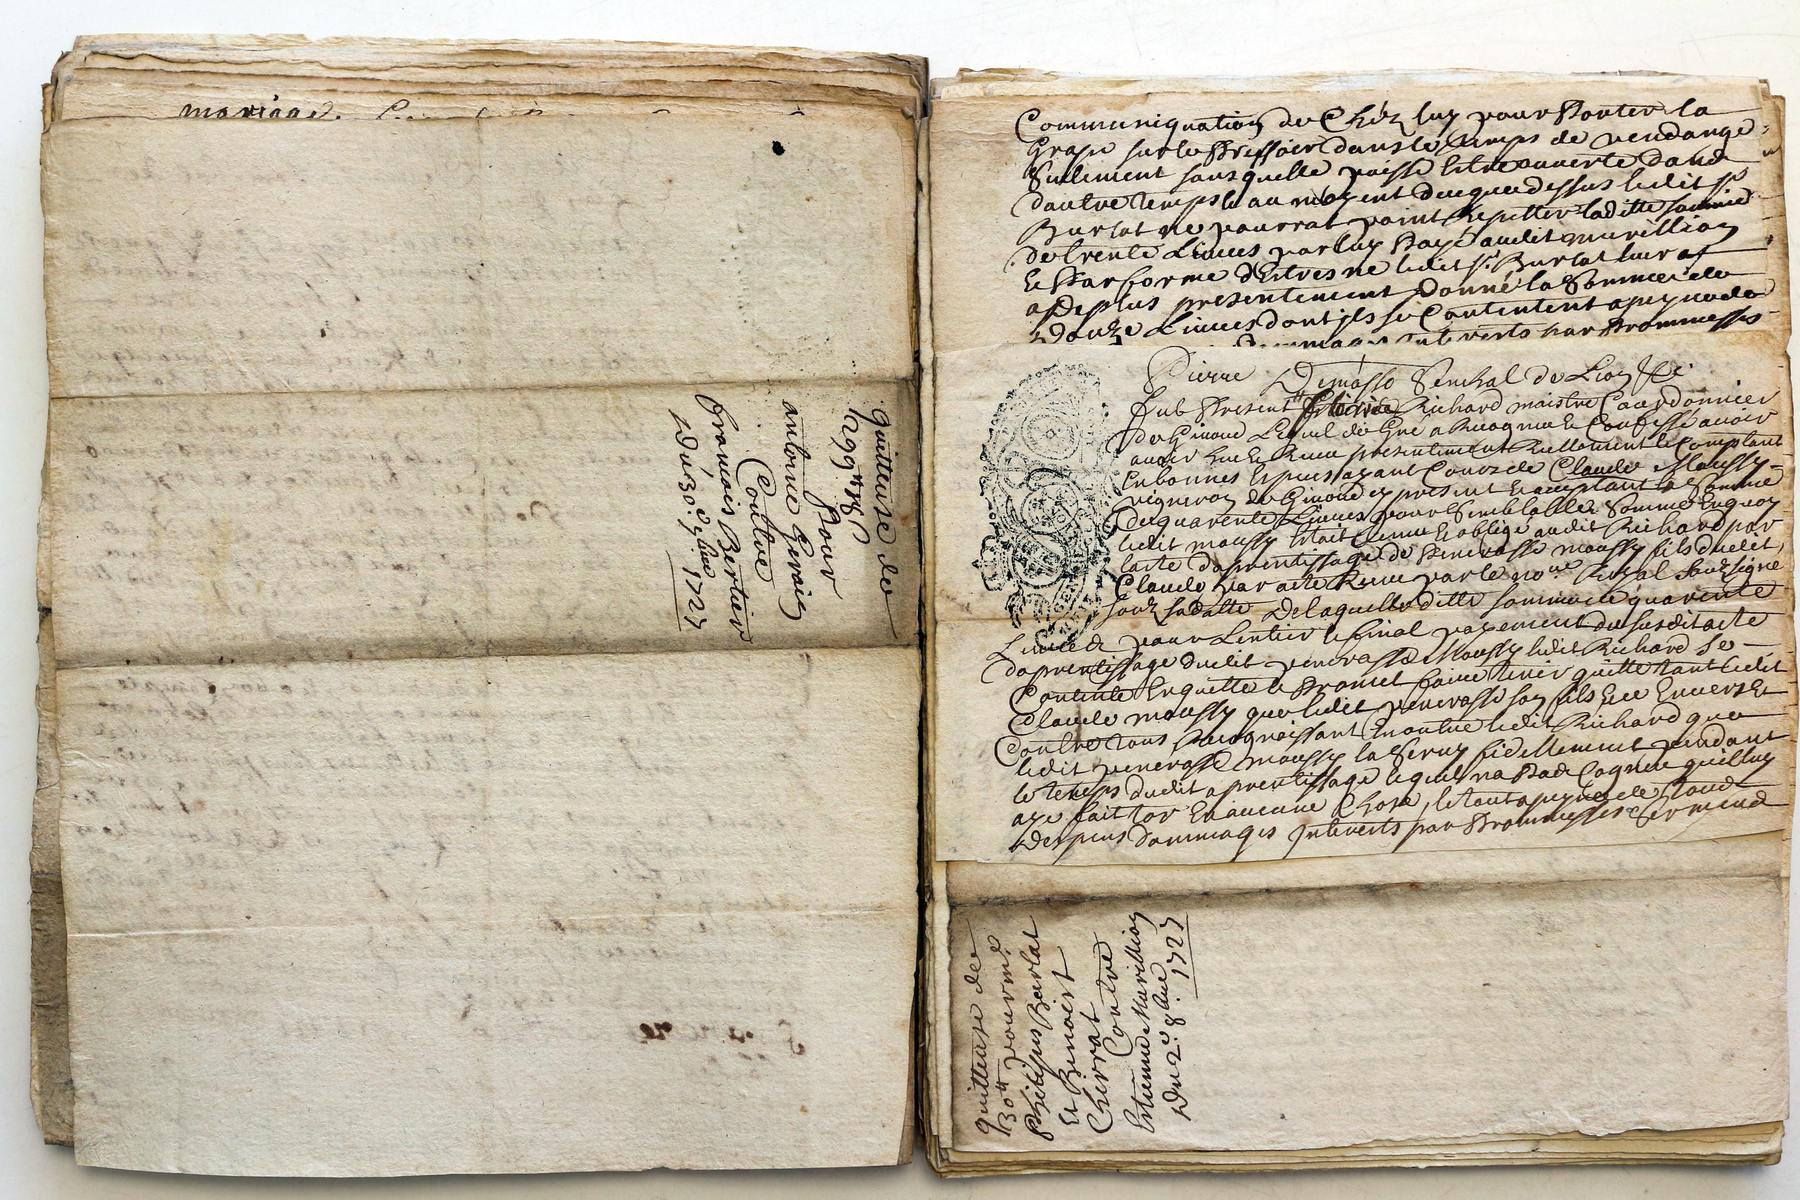 mariage
quittance de
1299ᵗᵗ 18ˢ
pour
antoine Gervais
Contre
francois Bertier
Du 30ᵉ 7bre 1727
Communiquation de Chez luy pour porter la
Grape sur le pressoir dans le temps de vendange
Seulement sans quelle puisse estre ouverte dans
dautre temps & au moyent de queclessus ledit sʳ
Burlat ne pourrat point repetter laditte somme
de trente Livres par luy payé audit murillion
& par forme d'Estresne ledit sʳ Burlat luy at
a de plus presentement donné la Somme de
douze Livres dont ils se Contentent a peyne de
dommages Interests par prommesses
Pierre Demasso Senchal de Lion &c
fut present Richard maistre Courdonnier
de Ginoud Lequel de Gre a Recognu & Confessé avoir
avoir heu & Receu presentement Reellement & Comptant
En bonnes Espesses ayant Cours de Claude Moussy
vigneron de Ginoud cy present & acceptant la Somme
de quarente Livres pour Semblable Somme En quoy
ledit moussy Estoit tenu & obligé audit Richard par
lacte daprentissage de venerasse moussy fils dudit
Claude par acte Receu par le noʳᵉ Royal Soubsigné
soubz sa datte De laquelle ditte somme de quarente
Livres pour Lentier & final payement du susdit acte
daprentissage dudit venerasse Moussy ledit Richard Se
Contente En quitte & promet faire tenir quitte tant ledit
Claude moussy que ledit venerasse son fils Envers Et
Contre tous Recognoissant En outre ledit Richard que
ledit venerasse moussy la Servy fidellement pendant
le temps dudit aprentissage lequel na pas Cognu quil luy
aye fait tor En aucune Chose, le tout a peyne de tous
Despens dommages Interests par prommesses Serment
quittance de
30ᵗᵗ pour
Philipes Burlat
Et Benoist
Chirat
Contre
Estienne Murillion
Du 2ᵉ 8bre 1727